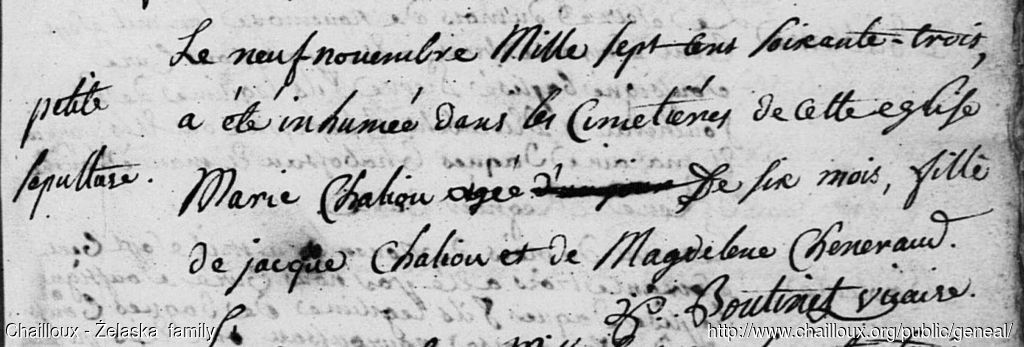 Le neuf novembre Mille sept cens soixante-trois,
petite
a été inhumée dans les Cimetiéres de cette eglise
sepulture.
Marie Chaliou agée d'un jour De six mois, fille
de jacque Chaliou et de Magdelene Cheneraud.
Boutinet vicaire.
Chailloux - Żelaska family
http://www.chailloux.org/public/geneal/